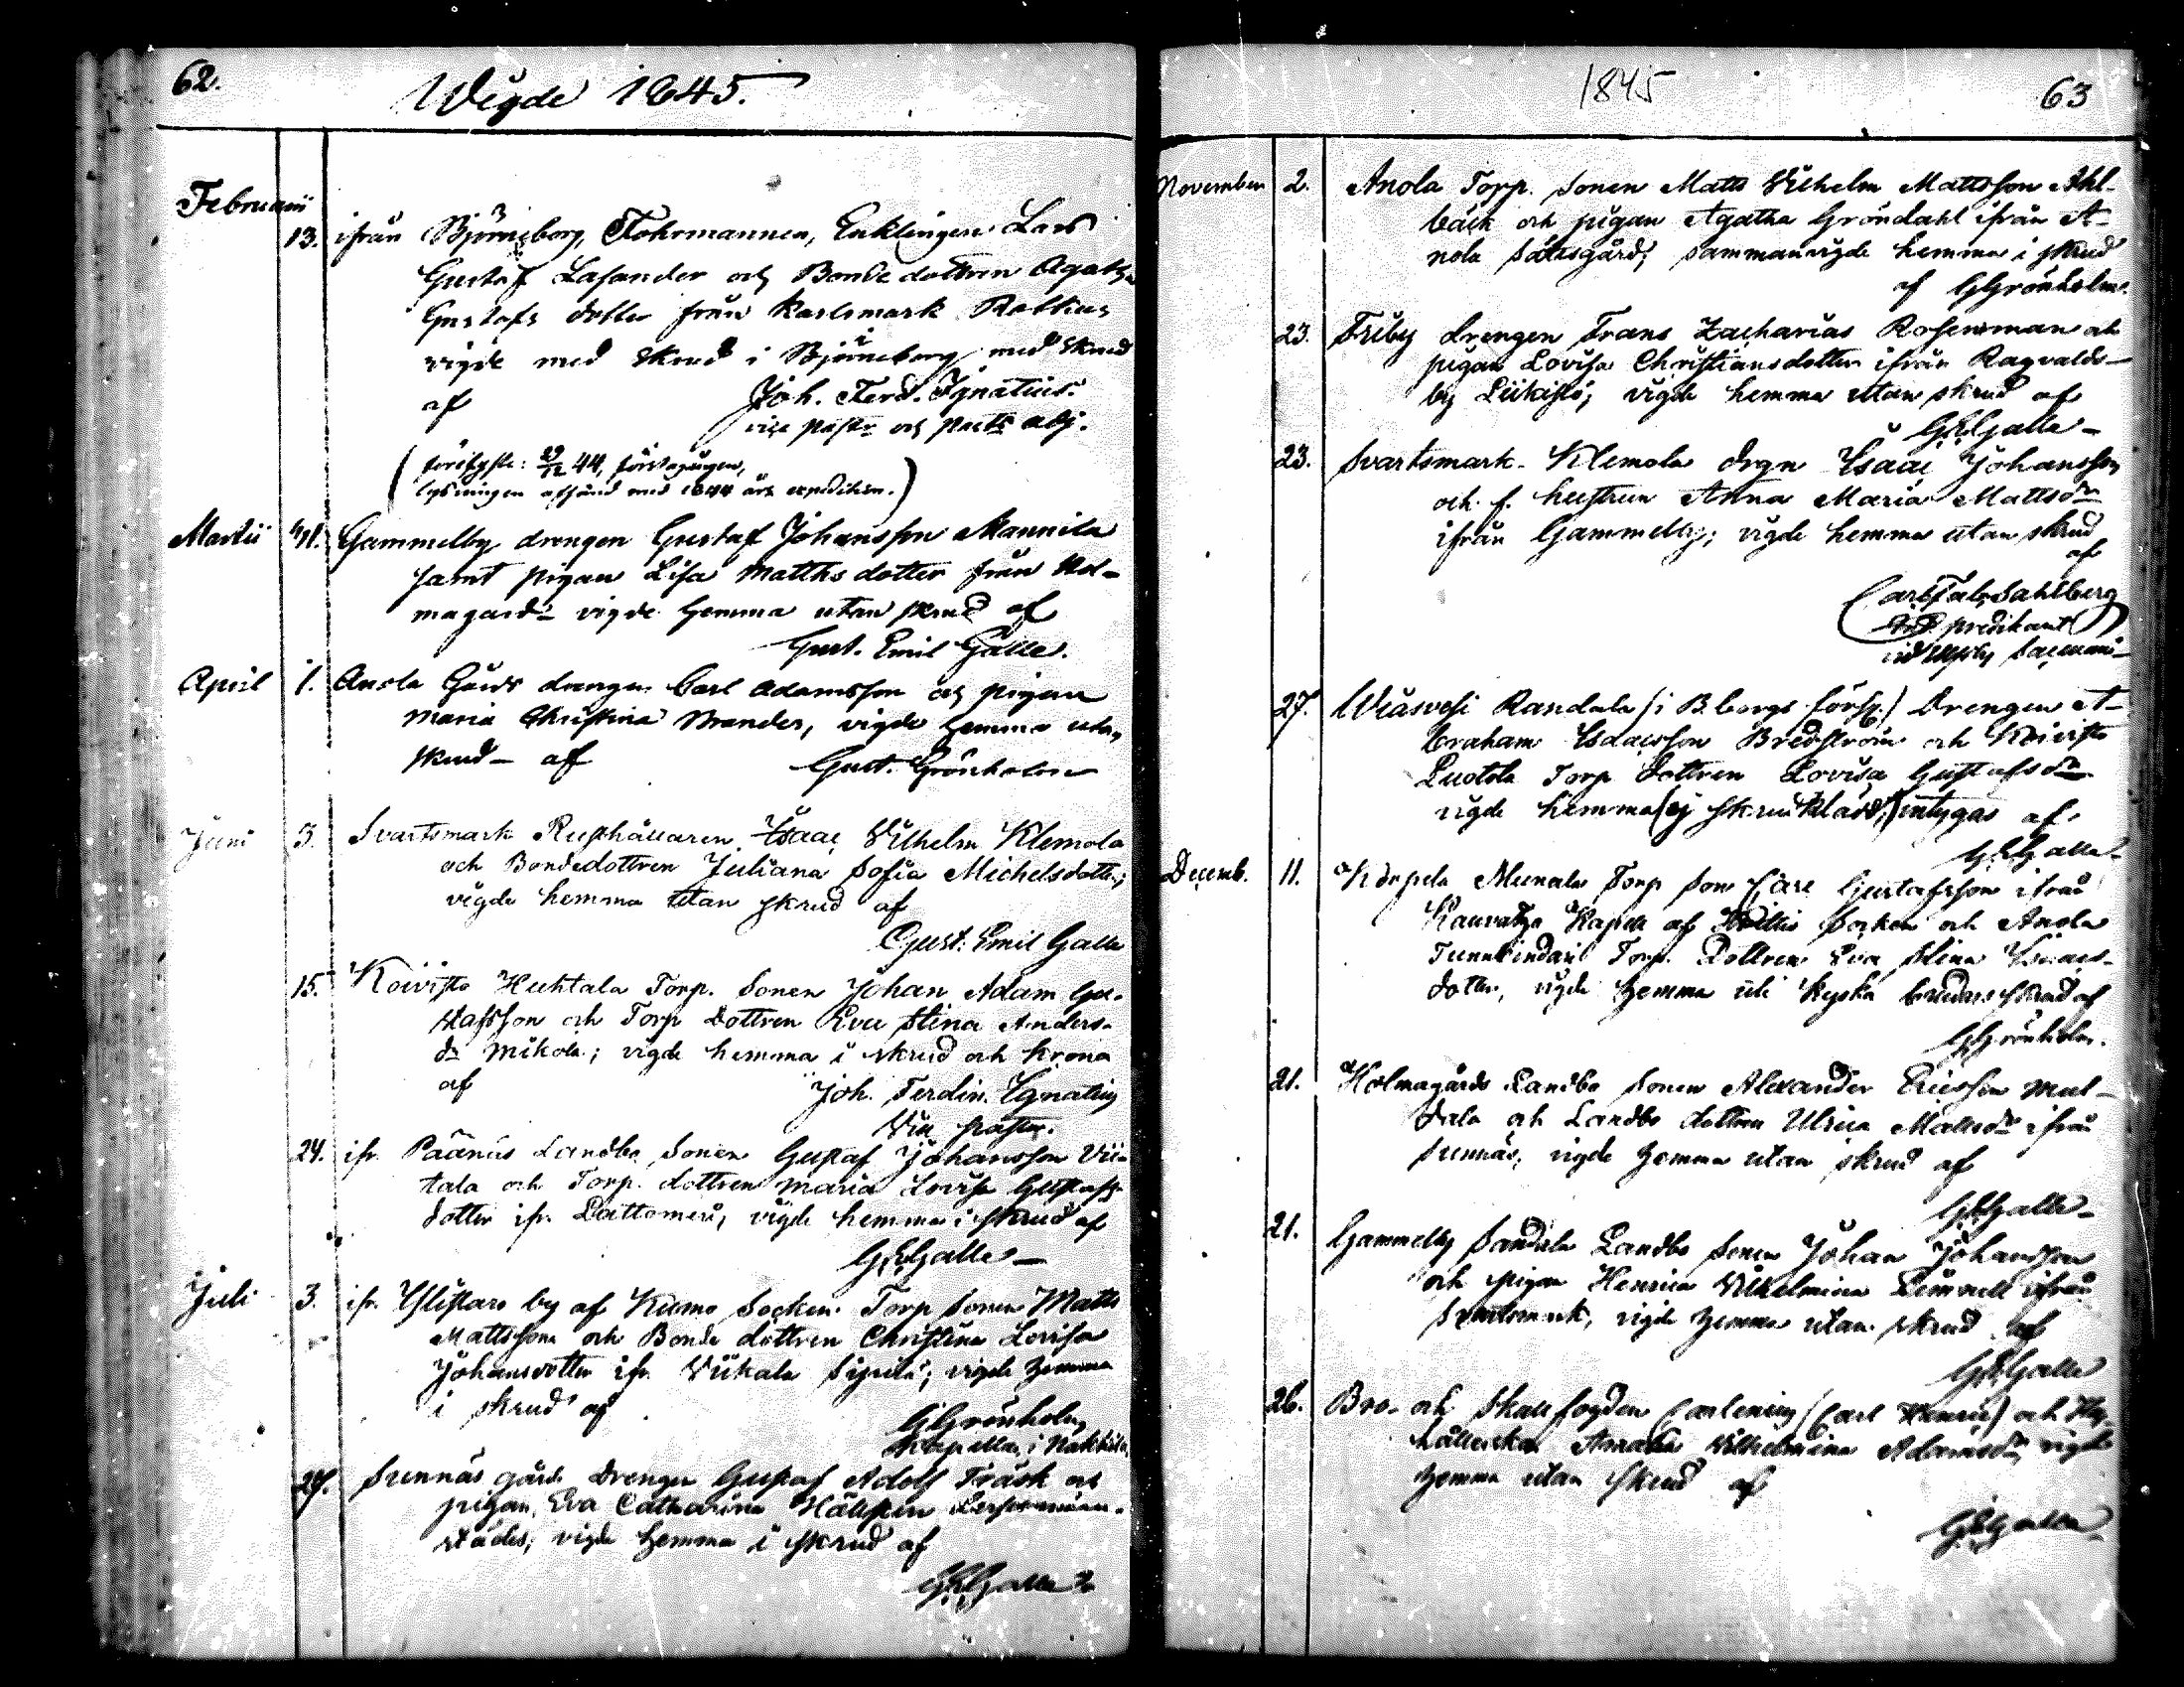 62.
Wigde 1845.
Februarii
13. ifrån Björneborg, Fohrmannen, Enklingen Lars
Gustaf Lasander och Bonde dottren Agatha
Gustafs dotter från Karlsmark Rottius
vigde med skrud i Björneborg med skrud
af Joh. Ferd. Ignatius.
vice pastr och pasts adj.
(företedde: 29/12 44, förstagången,
lysningen afsänd med 1844 års expedition.)
Martii 4. Gammelby drengen Gustaf Johansson Mannila
samt pigan Lisa Matths dotter från Hol-
magård vigde hemma utan skrud af
Gust. Emil Galle.
April 1. Anola Gårds drengen Carl Adamsson och pigan
Maria Christina Brander, vigde hemma utan
skrud - af Gust. Grönholm
Juni 5. Svartsmark Rusthållaren Isaac Wilhelm Klemola
och Bondedottren Juliana Sofia Michelsdotter;
vigde hemma utan skrud af
Gust. Emil Galle
15. Koivisto Huhtala Torp. Sonen Johan Adam Gu-
stafsson och Torp Dottren Eva Stina Anders-
dr Mikola; vigde hemma i skrud och krona
af Joh. Ferdin. Ignatius
Vice pastor.
24. ifr. Päänäs Landbo Sonen Gustaf Johansson Vii-
tala och Torp. dottren Maria Lovisa Gustafs-
dotter ifr. Lattomeri, vigde hemma i skrud af
GEGalle -
Juli 3. ifr. Ylistaro by af Kumo Socken Torp Sonen Matts
Mattsson och Bonde dottren Christina Lovisa
Johansdotter ifr. Wiikala Sipilä; vigde hemma
i skrud af
GGrönholm,
kapellan i Nakkila
27. Sunnäs gårds Drengen Gustaf Adolf Träsk och
pigan Eva Catharina Hällsten dersamma-
städes; vigde hemma i skrud af
GEGalle
1845
63
November 2. Anola Torp. Sonen Matts Wilhelm Mattsson Ahl-
bäck och pigan Agatha Gröndahl ifrån A-
nola Sätesgård; sammanvigde hemma i skrud
af GGrönholm.
23. Friby drengen Frans Zacharias Rosenman och
pigan Lovisa Christiansdotter ifrån Ragvalds-
by Liikistö; vigde hemma utan skrud af
GEGalle -
23. Svartsmark Klemola drgn Isaac Johansson
och f. hustrun Anna Maria Mattsdr
ifrån Gammelby; vigde hemma utan skrud
af
Carl Sahlberg
predikant
27. Wiasvesi Randala (i B.borgs förs.) Drengen A-
braham Isaacsson Bredström och Koivisto
Luotola Torp Dottren Lovisa Gustafsdr
vigde hemma (ej skrudklädd,) intygas af
GEGalle
Decemb. 11. Korpela Torp Son Carl Gustafsson ifrån
Kauvatsa Kapell af Socken och Anola
Tunnbindari Torp. Dottren Eva Stina Isaacs-
dotter, vigde hemma uti kyska brudars skrud af
GGrönholm.
21. Holmagårds Landbo Sonen Alexander Ericsson
och Landbo dottren Ulrica Mattsdr ifrån
Sunnäs; vigde hemma utan skrud af
GEGalle -
21. Gammelby Sandala Landbo Sonen Johan Johansson
och pigan Henrica Wilhelmina ifrån
Svartsmark, vigde hemma utan skrud af
GEGalle
26. Bro- och Skallfogden Carlenius (Carl Henric) och
Wilhelmina Adamsdr, vigde
hemma utan skrud af
GEGalle